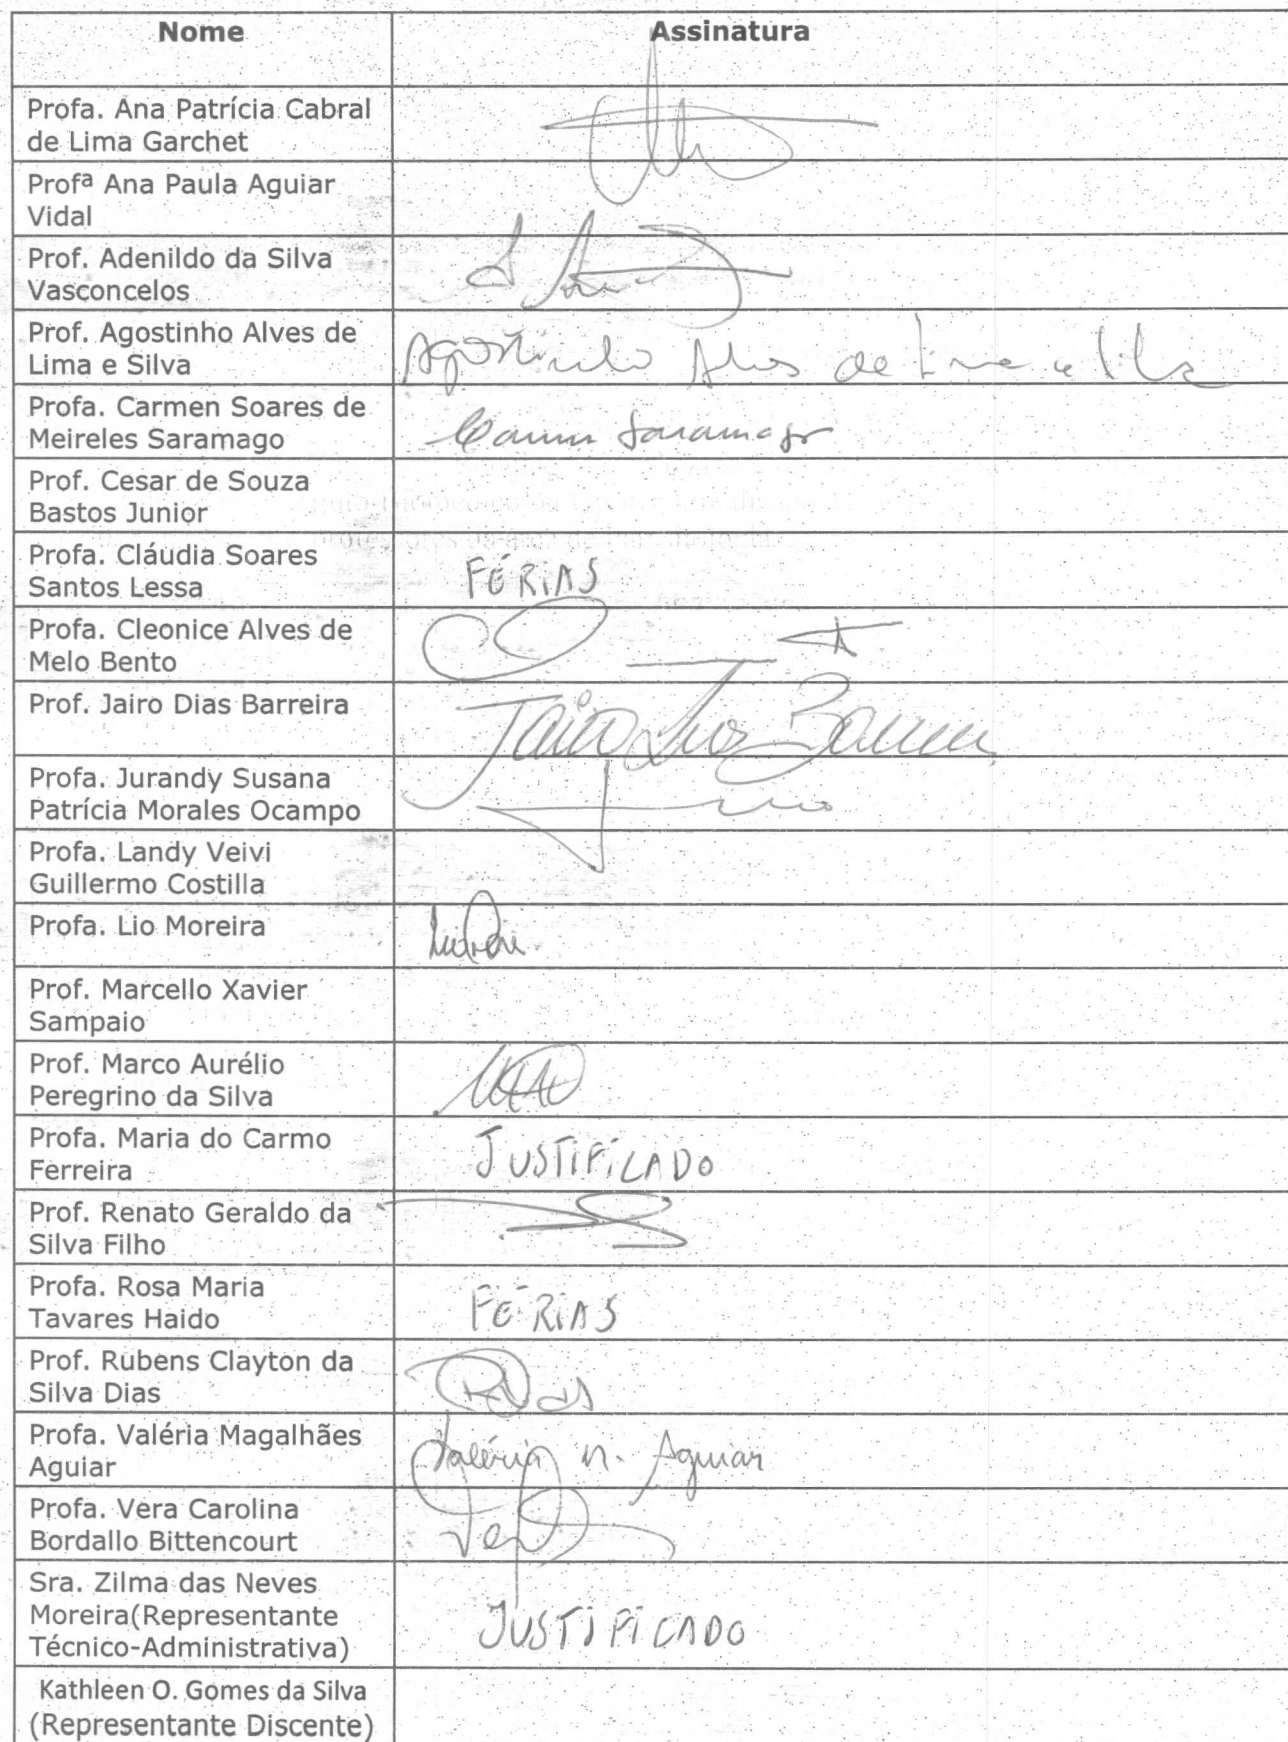 Nome Assinatura
Profa. Ana Patrícia Cabral
de Lima Garchet
Profª Ana Paula Aguiar
Vidal
Prof. Adenildo da Silva
Vasconcelos
Prof. Agostinho Alves de
Lima e Silva
Agostinho Alves de Lima e Silva
Profa. Carmen Soares de
Meireles Saramago
Carmen Saramago
Prof. Cesar de Souza
Bastos Junior
Profa. Cláudia Soares
Santos Lessa
FÉRIAS
Profa. Cleonice Alves de
Melo Bento
Prof. Jairo Dias Barreira
Jairo Dias Barreira
Profa. Jurandy Susana
Patrícia Morales Ocampo
Profa. Landy Veivi
Guillermo Costilla
Profa. Lio Moreira
Prof. Marcello Xavier
Sampaio
Prof. Marco Aurélio
Peregrino da Silva
Profa. Maria do Carmo
Ferreira
JUSTIFICADO
Prof. Renato Geraldo da
Silva Filho
Profa. Rosa Maria
Tavares Haido
FÉRIAS
Prof. Rubens Clayton da
Silva Dias
Profa. Valéria Magalhães
Aguiar
Valéria M. Aguiar
Profa. Vera Carolina
Bordallo Bittencourt
Sra. Zilma das Neves
Moreira(Representante
Técnico-Administrativa)
JUSTIFICADO
Kathleen O. Gomes da Silva
(Representante Discente)